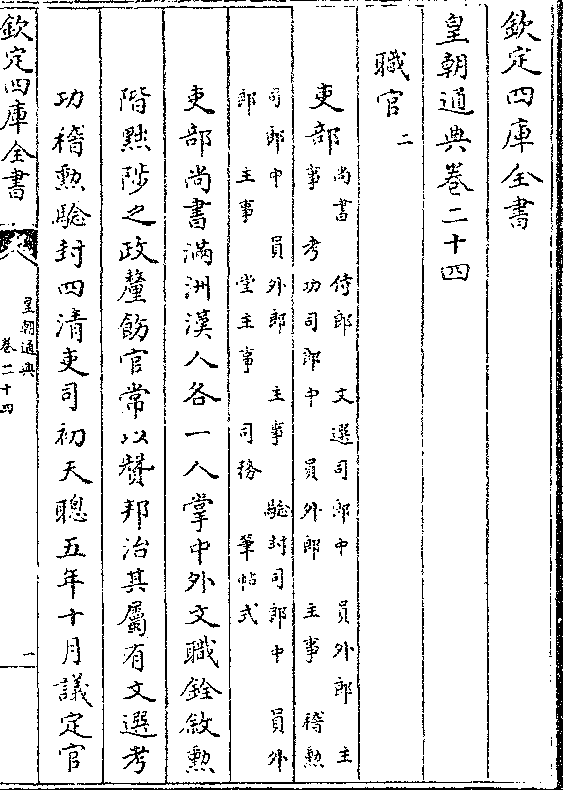 欽定四庫全書
皇朝通典卷二十四
職官二
吏部 尚書 侍郎 文選司郎中 員外郎 主
事 考功司郎中 員外郎 主事 稽勲
司郎中 員外郎 主事 驗封司郎中 員外
郎 主事 堂主事 司務 筆帖式
吏部尚書滿洲漢人各一人掌中外文職銓敘勲
階黜陟之政釐飭官常以贊邦治其屬有文選考
功稽勲驗封四清吏司初天聰五年十月議定官
欽定四庫全書
皇朝通典
卷二十四
一